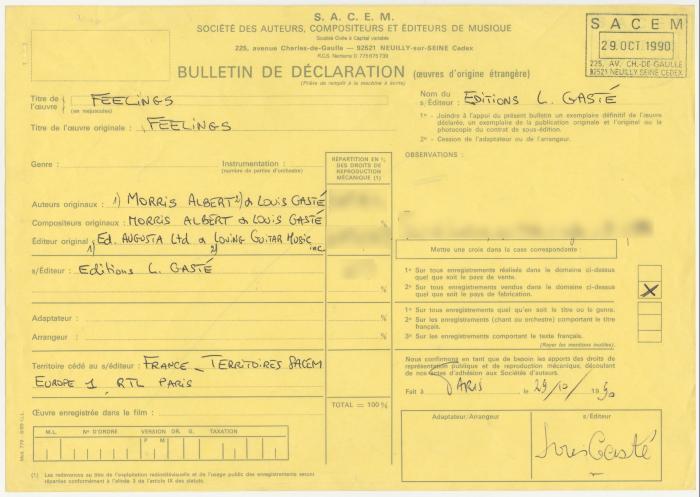 S. A. C. E. M.
SOCIÉTÉ DES AUTEURS, COMPOSITEURS ET ÉDITEURS DE MUSIQUE
Société Civile à Capital variable
225, avenue Charles-de-Gaulle — 92521 NEUILLY-sur-SEINE Cedex
R.C.S. Nanterre D 775 675 739
SACEM
29. OCT. 1990
225, AV. CH.-DE-GAULLE
92521 NEUILLY SEINE CEDEX
BULLETIN DE DÉCLARATION (œuvres d'origine étrangère)
(Prière de remplir à la machine à écrire)
Titre de l'œuvre : FEELINGS
(en majuscules)
Titre de l'œuvre originale : FEELINGS
Nom du s/Éditeur : EDITIONS L. GASTÉ
1° - Joindre à l'appui du présent bulletin un exemplaire définitif de l'œuvre
déclarée, un exemplaire de la publication originale et l'original ou la
photocopie du contrat de sous-édition.
2° - Cession de l'adaptateur ou de l'arrangeur.
Genre : Instrumentation :
(nombre de parties d'orchestre)
RÉPARTITION EN %
DES DROITS DE
REPRODUCTION
MÉCANIQUE (1)
OBSERVATIONS :
Auteurs originaux : 1) MORRIS ALBERT 2) & LOUIS GASTÉ
Compositeurs originaux : MORRIS ALBERT & LOUIS GASTÉ
Éditeur original : 1) Ed. AUGUSTA Ltd & 2) LOVING GUITAR MUSIC inc.
s/Éditeur : Editions L. GASTÉ
%
Adaptateur : %
Arrangeur : %
Mettre une croix dans la case correspondante :
1° Sur tous enregistrements réalisés dans le domaine ci-dessus
quel que soit le pays de vente.
2° Sur tous enregistrements vendus dans le domaine ci-dessus
quel que soit le pays de fabrication. X
1° Sur tous enregistrements quel qu'en soit le titre ou le genre.
2° Sur les enregistrements (chant ou orchestre) comportant le titre
français.
3° Sur les enregistrements comportant le texte français.
(Rayer les mentions inutiles).
Territoire cédé au s/éditeur : FRANCE _ TERRITOIRES SACEM
EUROPE 1, RTL PARIS
Nous confirmons en tant que de besoin les apports des droits de
représentation publique et de reproduction mécanique, découlant
de nos actes d'adhésion aux Sociétés d'auteurs.
Fait à PARIS le 29/10/ 1990
Œuvre enregistrée dans le film :
TOTAL = 100 %
M.L. N° D'ORDRE VERSION DR. G. TAXATION
P M
Adaptateur/Arrangeur s/Éditeur
Louis Gasté
(1) Les redevances au titre de l'exploitation radiotélévisuelle et de l'usage public des enregistrements seront
réparties conformément à l'alinéa 3 de l'article IX des statuts.